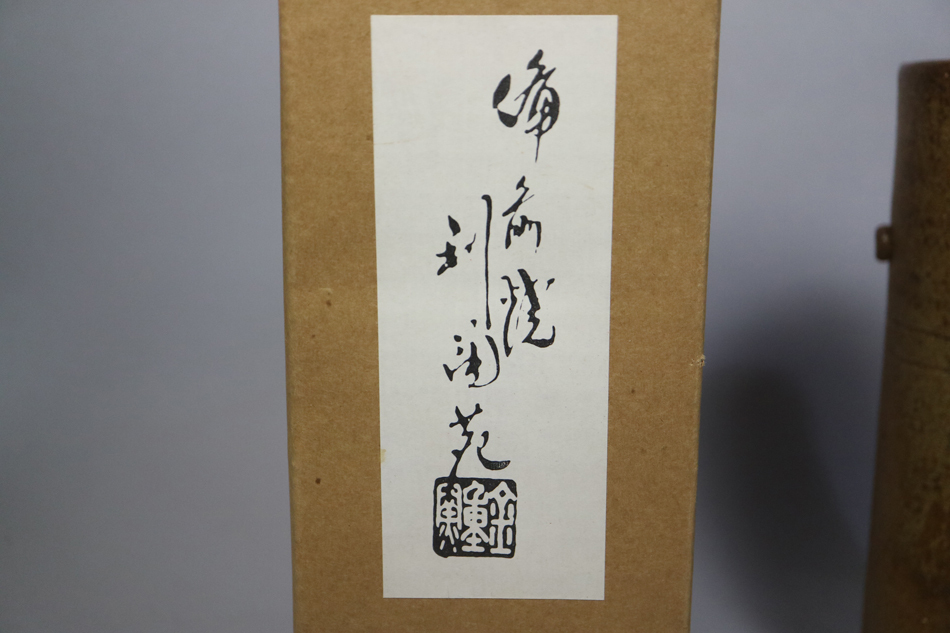 備前焼
利陶苑
金重